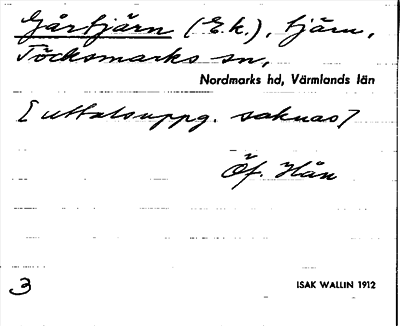 Gårtjärn (E.k.), tjärn,
Töcksmarks sn,
Nordmarks hd, Värmlands län
[uttalsuppg. saknas]
Öf. Hån
3
ISAK WALLIN 1912